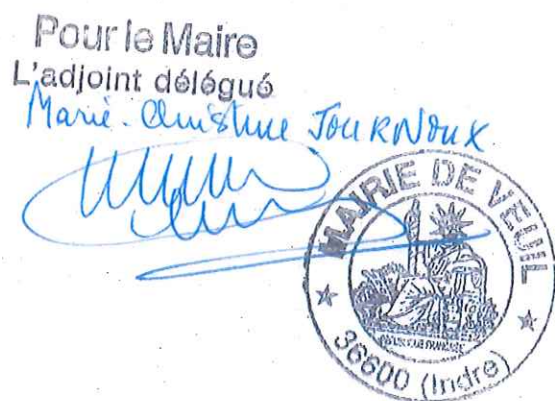 Pour le Maire
L'adjoint délégué
Marie-Christine JOURNOUX
MAIRIE DE VEUIL
RÉPUBLIQUE FRANÇAISE
36600 (Indre)